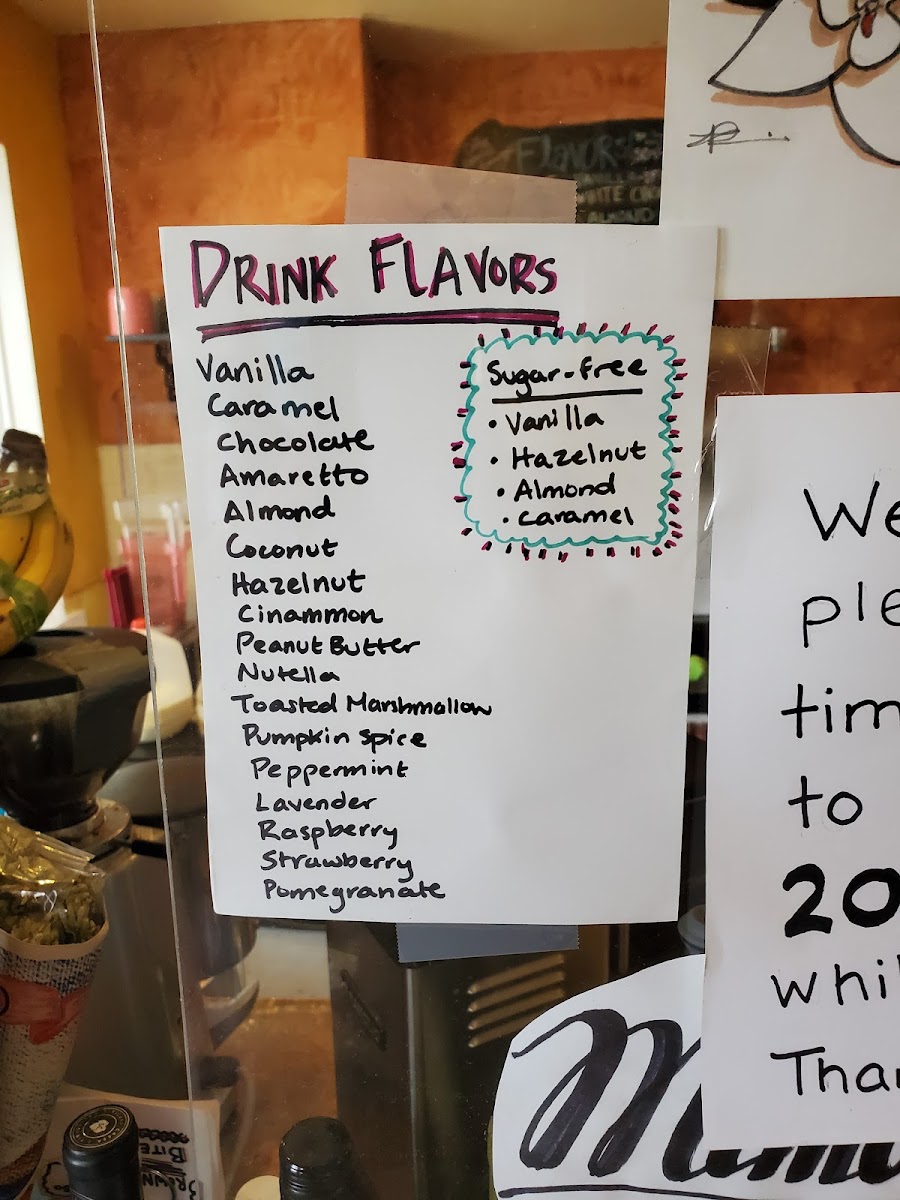 DRINK FLAVORS
Vanilla
Caramel
Chocolate
Amaretto
Almond
Coconut
Hazelnut
Cinammon
Peanut Butter
Nutella
Toasted Marshmallow
Pumpkin Spice
Peppermint
Lavender
Raspberry
Strawberry
Pomegranate
Sugar-free
• Vanilla
• Hazelnut
• Almond
• Caramel
FLAVORS
We
ple
tim
to
20
whil
Than